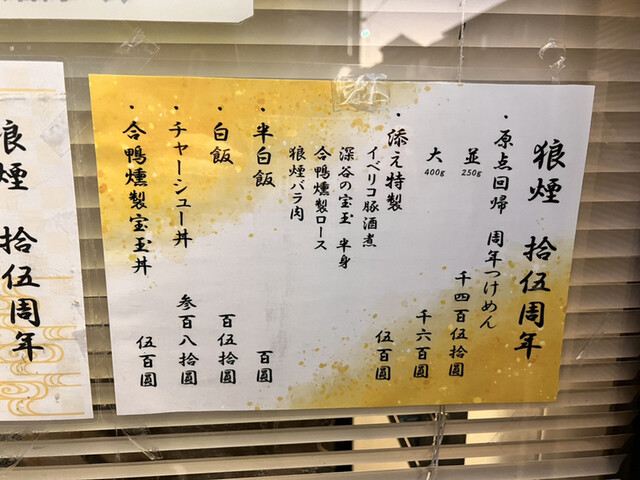 狼煙 拾伍周年
・原点回帰 周年つけめん
並 250g 千四百伍拾圓
大 400g 千六百圓
・添え特製 伍百圓
イベリコ豚酒煮
深谷の宝玉 半身
合鴨燻製ロース
狼煙バラ肉
・半白飯 百圓
・白飯 百伍拾圓
・チャーシュー丼 参百八拾圓
・合鴨燻製宝玉丼 伍百圓
狼煙 拾伍周年